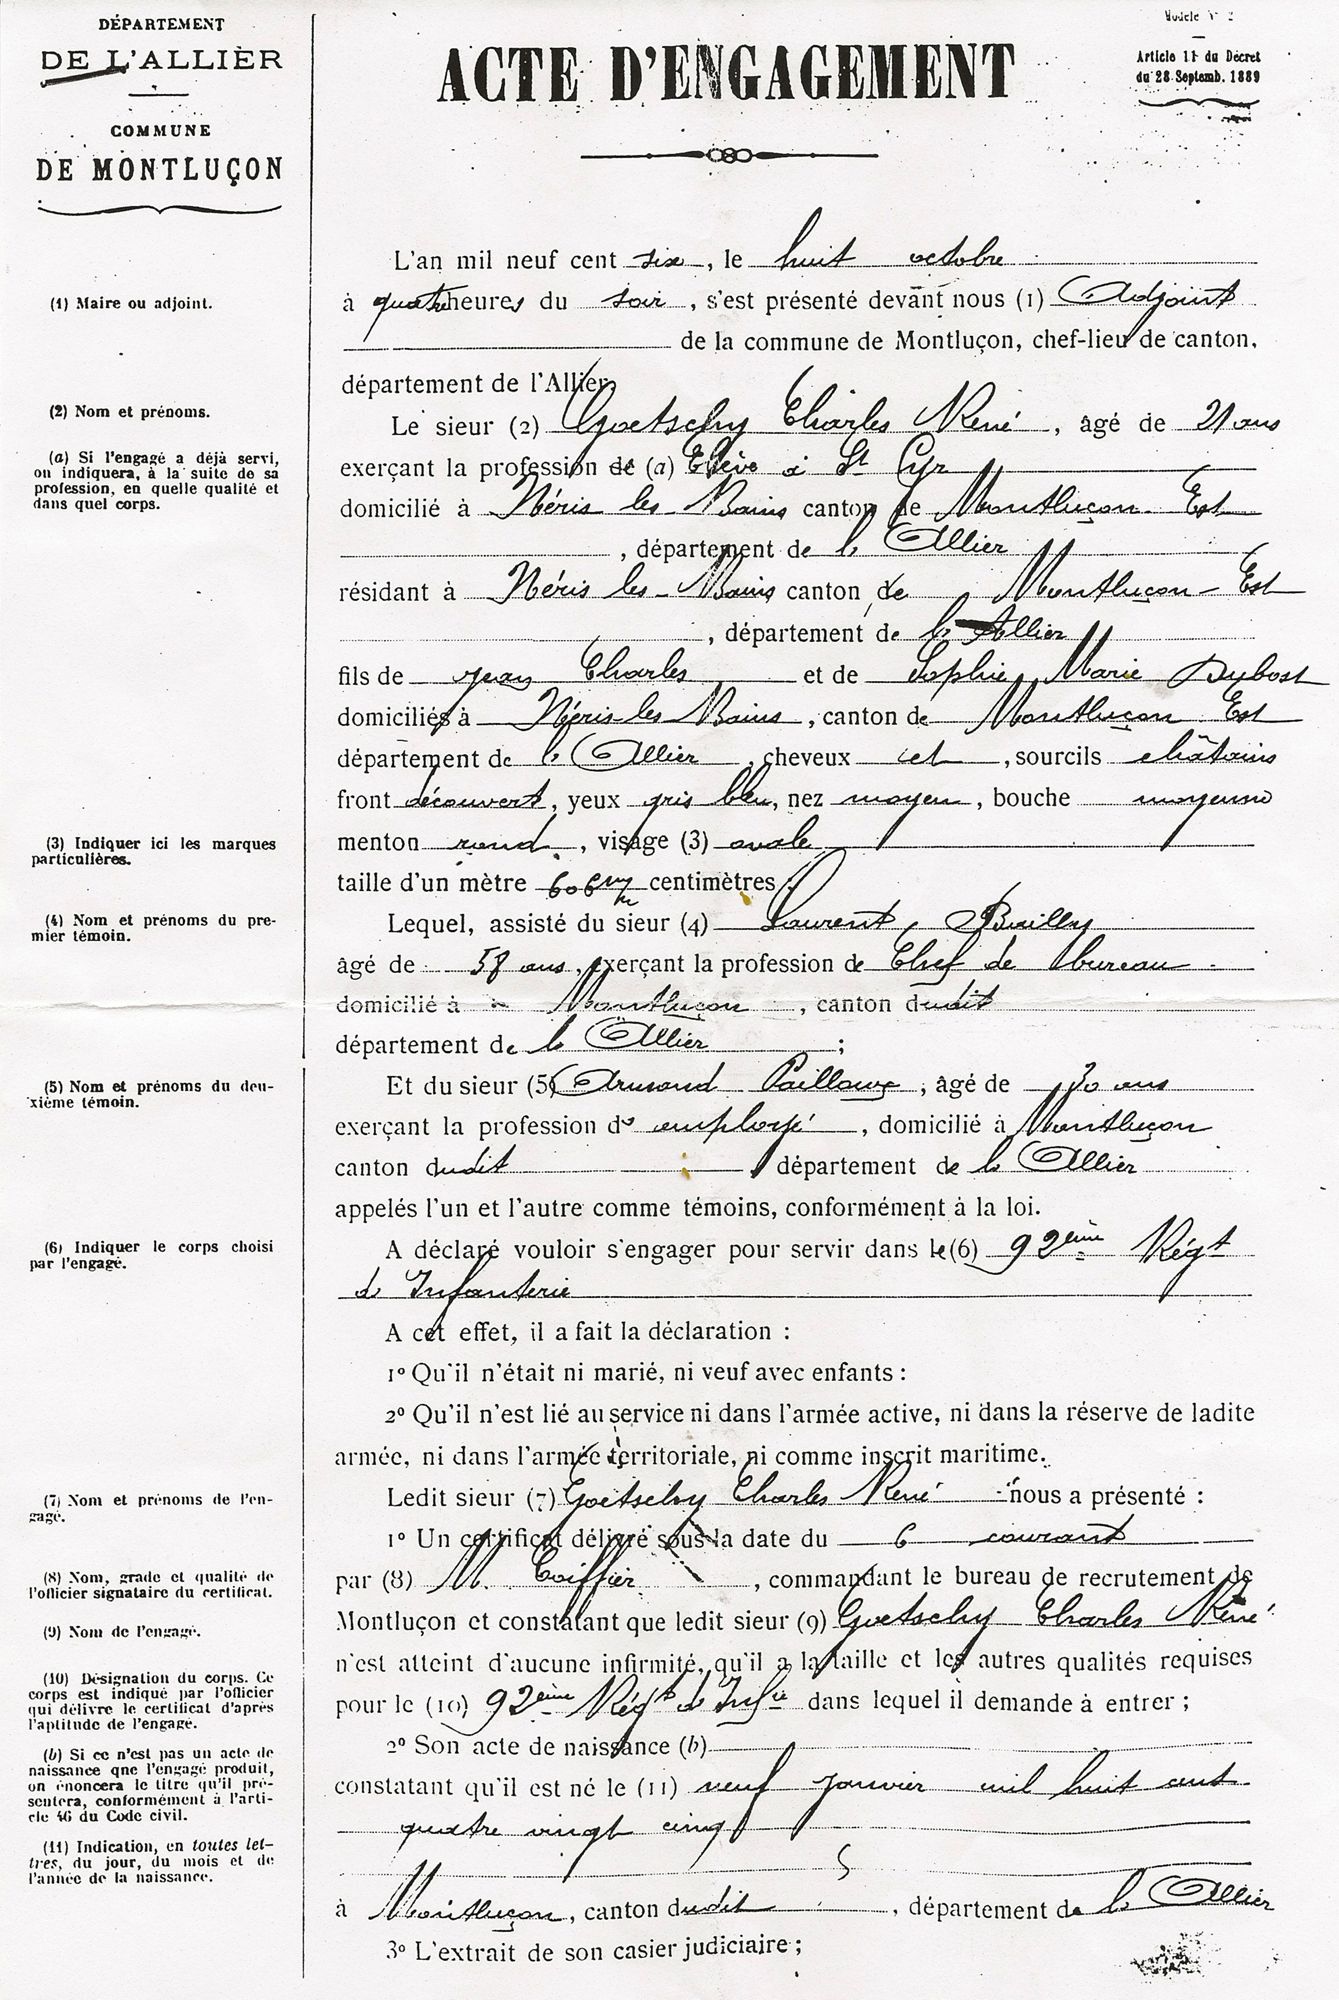 DÉPARTEMENT
DE L'ALLIÈR
COMMUNE
DE MONTLUÇON
ACTE D'ENGAGEMENT
Modèle N° 2
Article 11 du Décret
du 28 Septemb. 1889
L'an mil neuf cent six, le huit octobre
(1) Maire ou adjoint.
à quatre heures du soir, s'est présenté devant nous (1) Adjoint
de la commune de Montluçon, chef-lieu de canton,
département de l'Allier.
(2) Nom et prénoms.
Le sieur (2) Goetschy Charles René, âgé de 21 ans
(a) Si l'engagé a déjà servi,
on indiquera, à la suite de sa
profession, en quelle qualité et
dans quel corps.
exerçant la profession de (a) Elève à St Cyr
domicilié à Néris les-Bains canton de Montluçon-Est
, département de l'Allier
résidant à Néris les-Bains canton de Montluçon-Est
, département de l'Allier
fils de Jean Charles et de Sophie Marie Dubost
domiciliés à Néris-les Bains, canton de Montluçon Est
département de l'Allier, cheveux et, sourcils châtains
front découvert, yeux gris bleu, nez moyen, bouche moyenne
(3) Indiquer ici les marques
particulières.
menton rond, visage (3) ovale
taille d'un mètre centimètres ;
(4) Nom et prénoms du pre-
mier témoin.
Lequel, assisté du sieur (4) Laurent Bailly
âgé de 58 ans, exerçant la profession de Chef de bureau
domicilié à Montluçon, canton dudit
département de l'Allier ;
(5) Nom et prénoms du deu-
xième témoin.
Et du sieur (5) Armand Pailloux, âgé de 30 ans
exerçant la profession d' employé, domicilié à Montluçon
canton dudit département de l'Allier
appelés l'un et l'autre comme témoins, conformément à la loi.
(6) Indiquer le corps choisi
par l'engagé.
A déclaré vouloir s'engager pour servir dans le (6) 92ème Régt
d'Infanterie
A cet effet, il a fait la déclaration :
1° Qu'il n'était ni marié, ni veuf avec enfants :
2° Qu'il n'est lié au service ni dans l'armée active, ni dans la réserve de ladite
armée, ni dans l'armée territoriale, ni comme inscrit maritime.
(7) Nom et prénoms de l'en-
gagé.
Ledit sieur (7) Goetschy Charles René nous a présenté :
1° Un certificat délivré sous la date du 6 courant
(8) Nom, grade et qualité de
l'officier signataire du certificat.
par (8) M. Coiffier, commandant le bureau de recrutement de
Montluçon et constatant que ledit sieur (9) Goetschy Charles René
(9) Nom de l'engagé.
n'est atteint d'aucune infirmité, qu'il a la taille et les autres qualités requises
(10) Désignation du corps. Ce
corps est indiqué par l'officier
qui délivre le certificat d'après
l'aptitude de l'engagé.
pour le (10) 92ème Régt d'Infie dans lequel il demande à entrer ;
2° Son acte de naissance (b)
(b) Si ce n'est pas un acte de
naissance que l'engagé produit,
on énoncera le titre qu'il pré-
sentera, conformément à l'arti-
cle 46 du Code civil.
constatant qu'il est né le (11) neuf janvier mil huit cent
quatre vingt cinq
(11) Indication, en toutes let-
tres, du jour, du mois et de
l'année de la naissance.
à Montluçon, canton dudit, département de l'Allier
3° L'extrait de son casier judiciaire ;